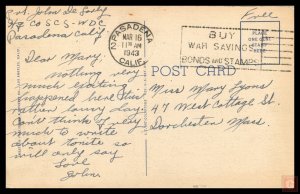 Pvt. John De
Co SCS-WDC
Pasadena Calif.
Free
PASADENA
MAR 16
11 30 AM
1943
CALIF.
BUY
WAR SAVINGS
BONDS AND STAMPS
PLACE
ONE CENT
STAMP
HERE
POST CARD
Dear Mary;
nothing very
much exciting
happened here this
rather lovely day
Can't think of very
much to write
about tonite so
will only say
Love
John.
Miss Mary Lyons
47 West Cottage St.
Dorchester Mass.